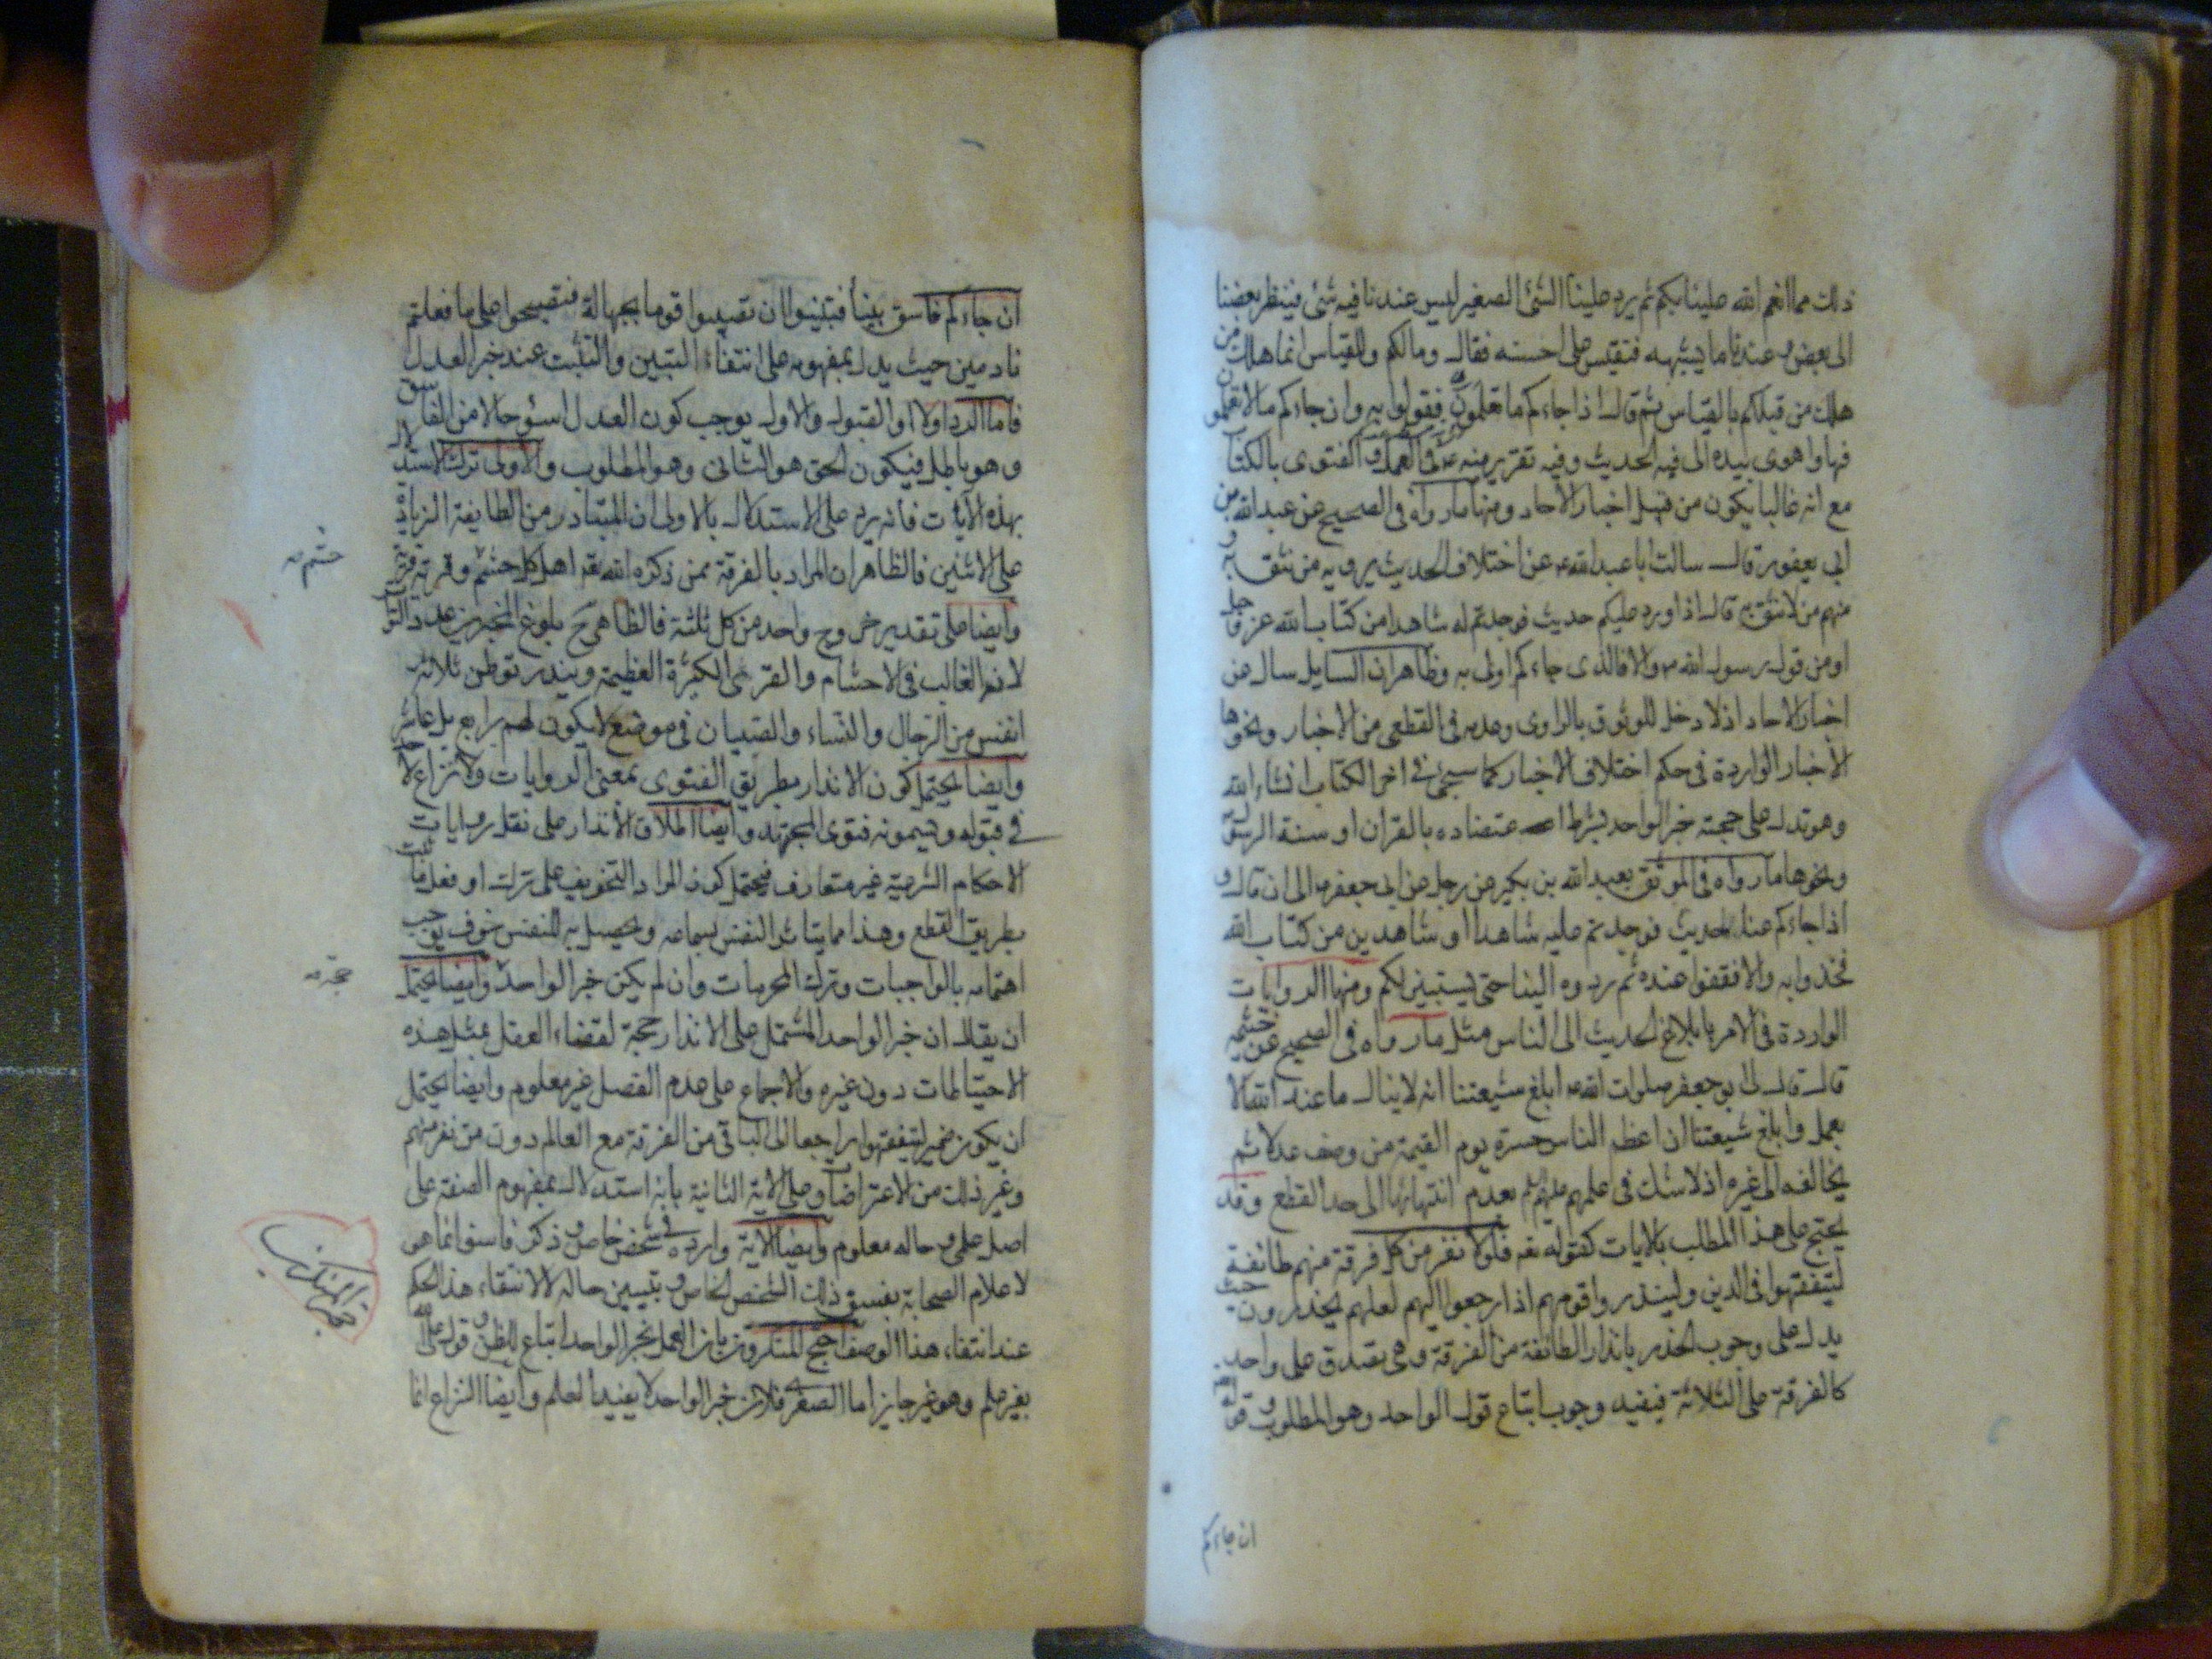 ذلك مما انعم الله علينا بكم ثم يرد علينا الشئ الصغير ليس عندنا فيه شئ فينظر بعضنا
الى بعض و عندنا ما يشبهه فنقيس على احسنه فقال ومالكم وللقياس انما هلك من
هلك من قبلكم بالقياس ثم قال اذا جاءكم ما تعلمون فقولوا به وان جاءكم ما لا تعلمون
فها واهوى بيده الى فيه الحديث وفيه تقرير منه ع في العمل و الفتوى بالكتاب
مع انه غالبا يكون من قبيل اخبار الآحاد ومنها ما رواه في الصحيح عن عبد الله بن
ابي يعفور قال سالت ابا عبد الله ع عن اختلاف الحديث يرويه من نثق به و
منهم من لا نثق به قال اذا ورد عليكم حديث فوجدتم له شاهدا من كتاب الله عز وجل
او من قول رسول الله ص والا فالذى جاءكم اولى به وظاهر ان السايل سال عن
اخبار الاحاد اذ لا دخل للوثوق بالراوى وعدمه فى القطعى من الاخبار ونحوها
الاخبار الواردة فى حكم اختلاف الاخبار كما سيجئ فى اخر الكتاب انشاء الله
وهو تدل على حجية خبر الواحد بشرط اعتضاده بالقران او سنة الرسول
ونحوها ما رواه فى الموثق بعبد الله بن بكير عن رجل عن ابى جعفر ع الى ان قال و
اذا جاءكم عنا الحديث فوجدتم عليه شاهدا او شاهدين من كتاب الله
فخذوا به والا فقفوا عنده ثم ردوه الينا حتى يستبين لكم ومنها الروايات
الواردة فى الامر بابلاغ الحديث الى الناس مثل ما رواه فى الصحيح عن خثيمه
قال قال لى ابو جعفر صلوات الله ع ابلغ شيعتنا انه لا ينال ما عند الله الا
بعمل وابلغ شيعتنا ان اعظم الناس حسرة يوم القيمة من وصف عدلا ثم
يخالفه الى غيره اذ لا شك فى علمهم عليهم السلم بعدم انتهائها الى حد القطع وقد
يحتج على هذا المطلب بالايات كقوله تعه فلولا نفر من كل فرقة منهم طائفة
ليتفقهوا فى الدين ولينذروا قومهم اذا رجعوا اليهم لعلهم يحذرون حيث
يدل على وجوب الحذر بانذار الطائفة من الفرقة وهى تصدق على واحد
كالفرقة على الثلاثة فيفيد وجوب اتباع قول الواحد وهو المطلوب و قوله تعه
ان جاءكم
ان جاءكم فاسق بنبأ فتبينوا ان تصيبوا قوما بجهالة فتصبحوا على ما فعلتم
نادمين حيث يدل بمفهومه على انتفاء التبين والتثبت عند خبر العدل
فاما الرد اولا او القبول والاول يوجب كون العدل اسوء حالا من الفاسق
وهو باطل فيكون الحق هو الثانى وهو المطلوب والاولى ترك الاستدلال
بهذه الآيات فانه يرد على الاستدلال بالاولى ان المتبادر من الطايفة الزيادة
على الاثنين فالظاهر ان المراد بالفرقة ممن ذكره الله تعه اهل كل حشم وقرية قرية
وايضا على تقدير خروج واحد من كل ثلثة فالظاهر ح بلوغ المخبرين عدد التواتر
لانه الغالب فى الاحشام والقرى الكثرة العظيمة ويندر توطن ثلاثة
انفس من الرجال والنساء والصبيان فى موضع لا يكون لهم رابع بل عاشر
وايضا يحتمل كون الانذار بطريق الفتوى بمعنى الروايات ولا نزاع لاحد
في قبوله ويسمونه فتوى المجتهد وايضا اطلاق الانذار على نقل روايات
الاحكام الشرعية غير متعارف فيحتمل كون المراد التخويف على ترك او فعل ما ثبت
بطريق القطع وهذا مما يتاثر النفس بسماعه ويحصل به للنفس خوف يوجب
اهتمامه بالواجبات وترك المحرمات وان لم يكن خبر الواحد وايضا يحتمل
ان يقال ان خبر الواحد المشتمل على الانذار حجة لقضاء العقل بمثل هذه
الاحتياطات دون غيره والاجماع على عدم الفصل غير معلوم وايضا يحتمل
ان يكون ضمير ليتفقهوا راجعا الى الباقى من الفرقة مع العالم دون من نفر منهم
وغير ذلك من الاعتراضات و على الاية الثانية بانه استدلال بمفهوم الصفة على
اصل علمى و حاله معلوم وايضا الاية واردة فى شخص خاص و ذكر فاسق انما هو
لاعلام الصحابة بفسق ذلك الشخص الخاص و تبيين حاله لا لانتفاء هذا الحكم
عند انتفاء هذا الوصف احتج المنكرون بان العمل بخبر الواحد اتباع للظن و قول على الله
بغير علم وهو غير جايز اما الصغرى فلان خبر الواحد لا يفيد العلم وايضا النزاع انما
حشم ص
حجة ص
حجة المنكرين